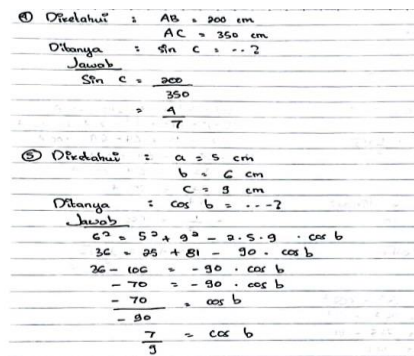 ④ Diketahui : AB = 200 cm
AC = 350 cm
Ditanya : sin C = ...?
Jawab
Sin C = 200
350
= 4
7
⑤ Diketahui : a = 5 cm
b = 6 cm
C = 9 cm
Ditanya : cos b = ....?
Jawab
6² = 5² + 9² - 2.5.9 . cos b
36 = 25 + 81 - 90 . cos b
36 - 106 = - 90 . cos b
- 70 = - 90 . cos b
- 70 = cos b
- 90
7 = cos b
9